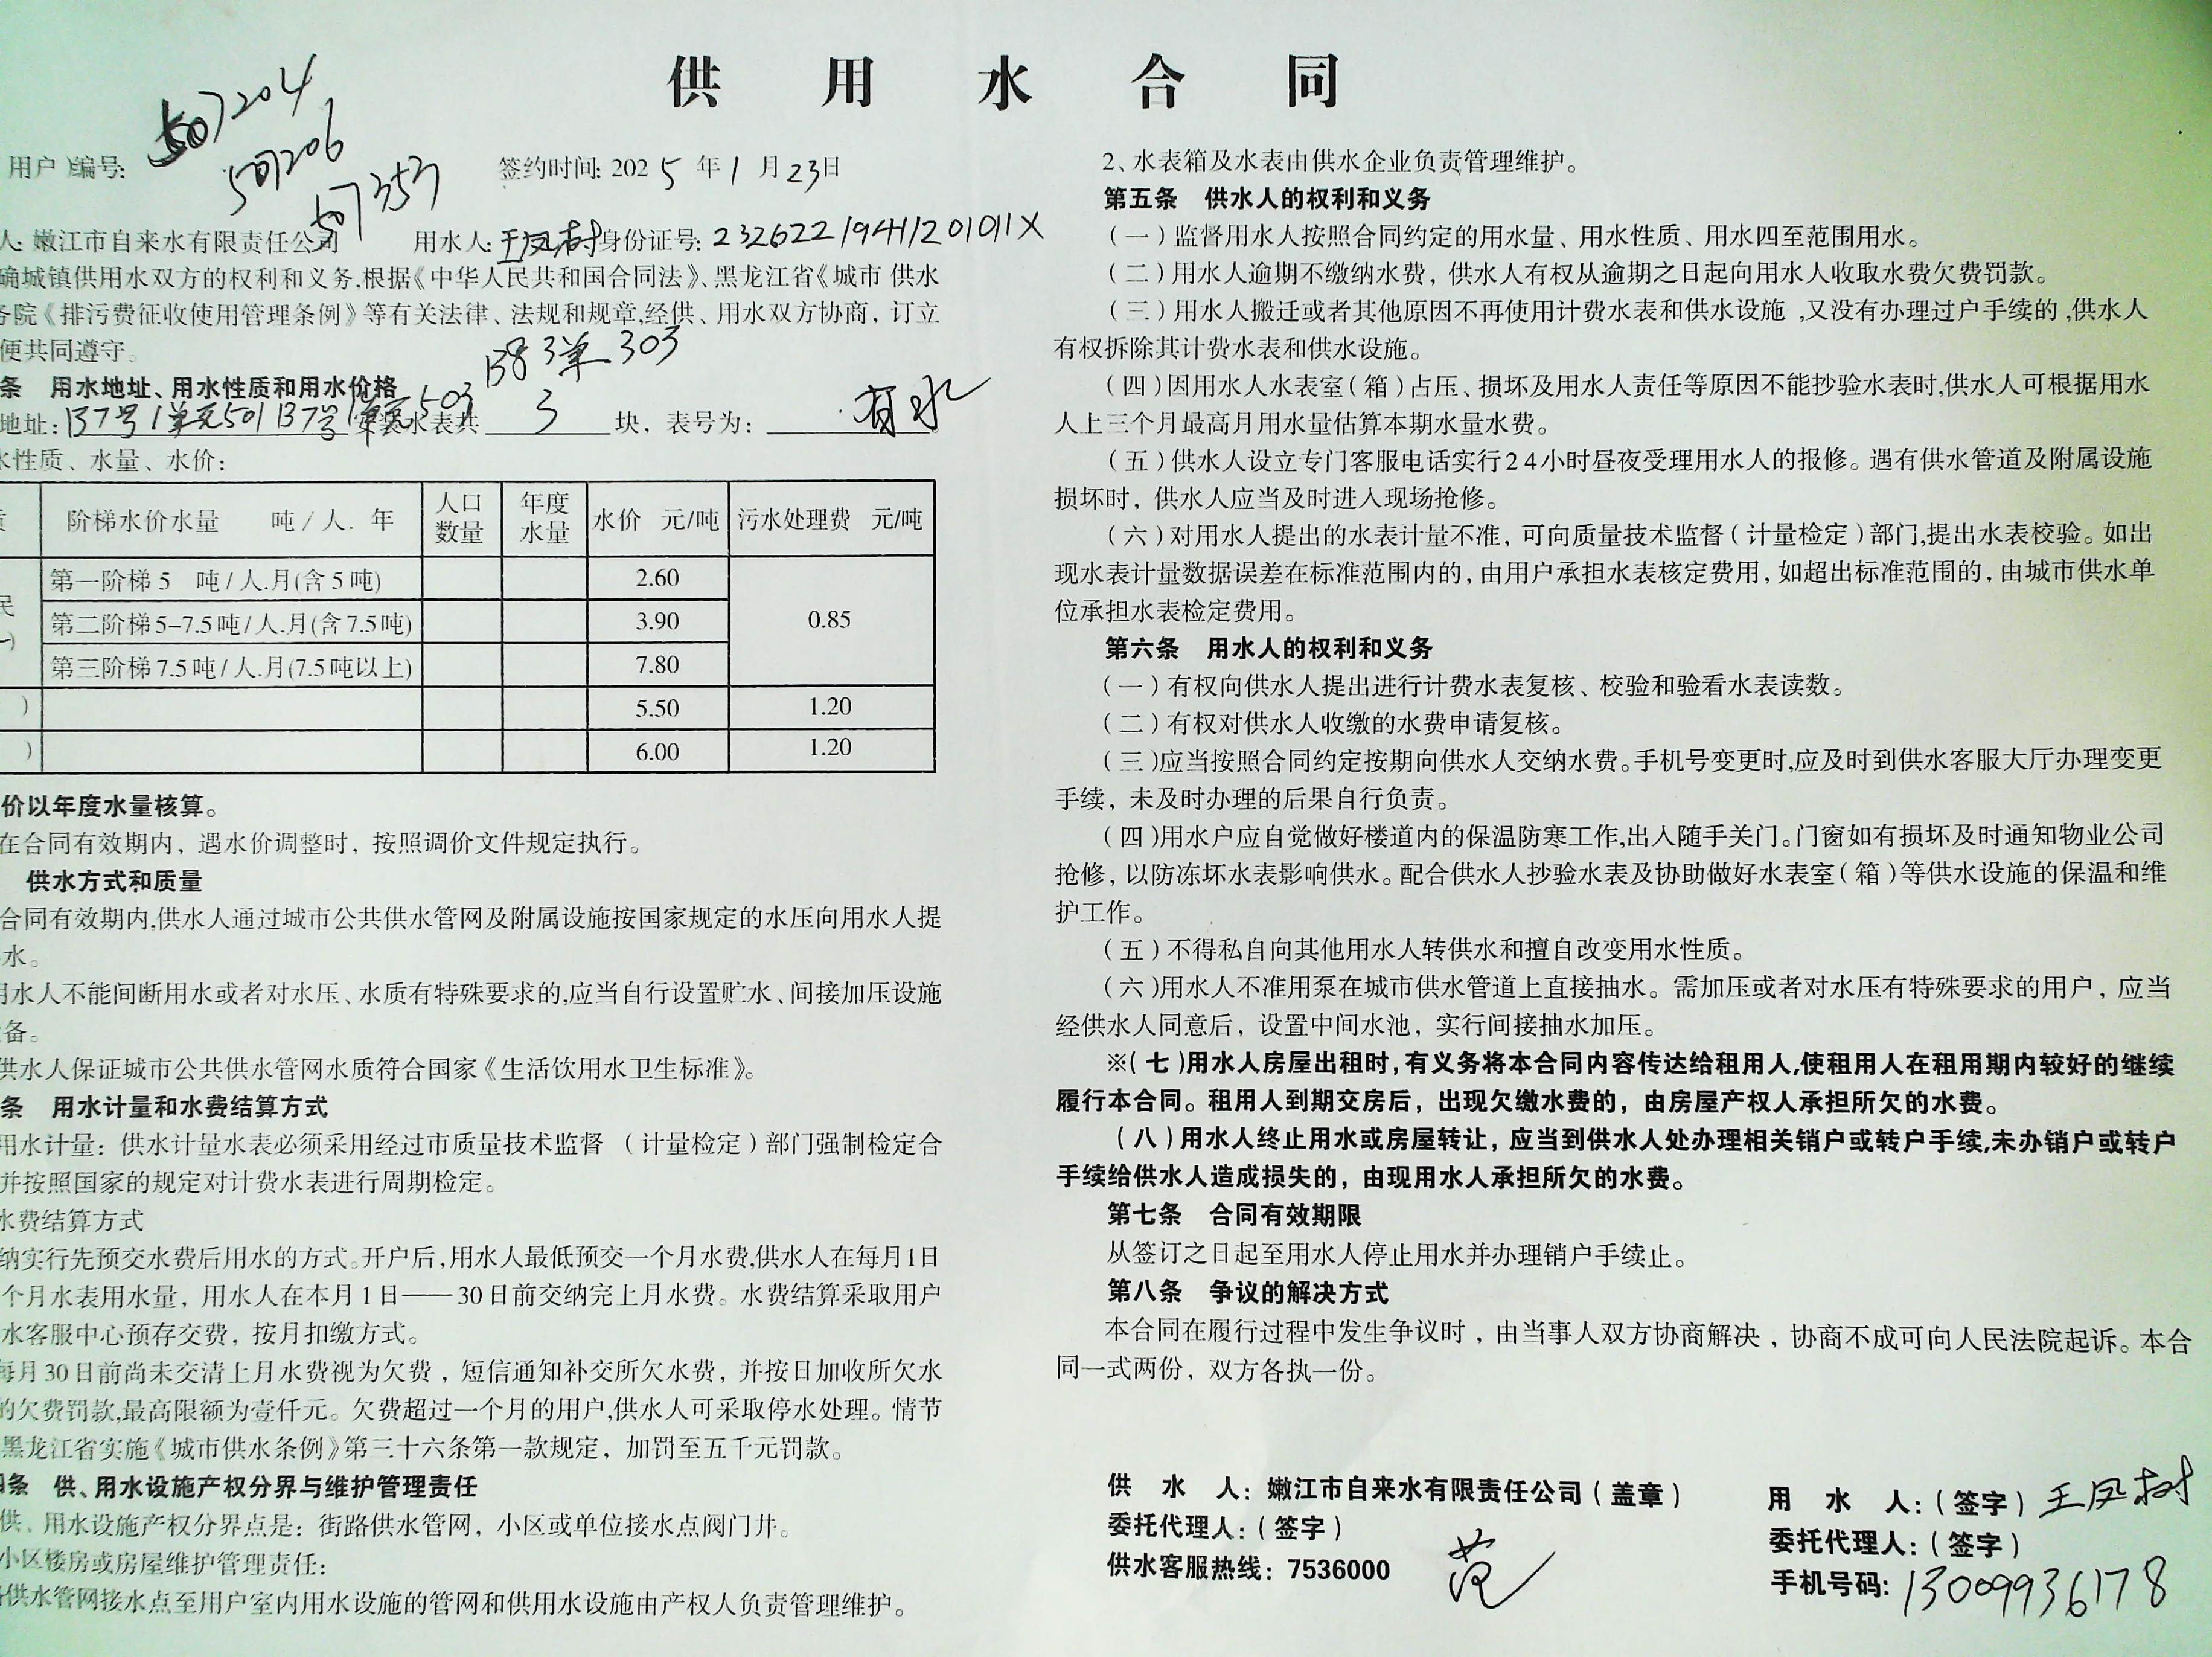 供用水合同
507204
507206
507353
用户)编号: 签约时间: 2025年1月23日
人: 嫩江市自来水有限责任公司 用水人: 王凤树 身份证号: 23262219411201011X
确城镇供用水双方的权利和义务,根据《中华人民共和国合同法》、黑龙江省《城市 供水
务院《排污费征收使用管理条例》等有关法律、法规和规章,经供、用水双方协商，订立
便共同遵守。
B8 3单 303
条 用水地址、用水性质和用水价格
地址: B7号1单元501 B7号1单元503 安装水表共 3 块，表号为: 有水
水性质、水量、水价:
阶梯水价水量 吨/人. 年 人口数量 年度水量 水价 元/吨 污水处理费 元/吨
民 第一阶梯 5 吨/人.月(含5吨) 2.60
第二阶梯 5-7.5吨/人.月(含7.5吨) 3.90 0.85
第三阶梯 7.5吨/人.月(7.5吨以上) 7.80
) 5.50 1.20
) 6.00 1.20
价以年度水量核算。
在合同有效期内，遇水价调整时，按照调价文件规定执行。
供水方式和质量
合同有效期内,供水人通过城市公共供水管网及附属设施按国家规定的水压向用水人提
水。
用水人不能间断用水或者对水压、水质有特殊要求的,应当自行设置贮水、间接加压设施
备。
供水人保证城市公共供水管网水质符合国家《生活饮用水卫生标准》。
条 用水计量和水费结算方式
用水计量：供水计量水表必须采用经过市质量技术监督 （计量检定）部门强制检定合
并按照国家的规定对计费水表进行周期检定。
水费结算方式
纳实行先预交水费后用水的方式。开户后,用水人最低预交一个月水费,供水人在每月1日
个月水表用水量，用水人在本月1日——30日前交纳完上月水费。水费结算采取用户
水客服中心预存交费，按月扣缴方式。
每月30日前尚未交清上月水费视为欠费，短信通知补交所欠水费，并按日加收所欠水
的欠费罚款,最高限额为壹仟元。欠费超过一个月的用户,供水人可采取停水处理。情节
黑龙江省实施《城市供水条例》第三十六条第一款规定，加罚至五千元罚款。
条 供、用水设施产权分界与维护管理责任
供、用水设施产权分界点是：街路供水管网，小区或单位接水点阀门井。
小区楼房或房屋维护管理责任:
供水管网接水点至用户室内用水设施的管网和供用水设施由产权人负责管理维护。
2、水表箱及水表由供水企业负责管理维护。
第五条 供水人的权利和义务
（一）监督用水人按照合同约定的用水量、用水性质、用水四至范围用水。
（二）用水人逾期不缴纳水费，供水人有权从逾期之日起向用水人收取水费欠费罚款。
（三）用水人搬迁或者其他原因不再使用计费水表和供水设施 ,又没有办理过户手续的 ,供水人
有权拆除其计费水表和供水设施。
（四）因用水人水表室（箱）占压、损坏及用水人责任等原因不能抄验水表时,供水人可根据用水
人上三个月最高月用水量估算本期水量水费。
（五）供水人设立专门客服电话实行24小时昼夜受理用水人的报修。遇有供水管道及附属设施
损坏时，供水人应当及时进入现场抢修。
（六）对用水人提出的水表计量不准，可向质量技术监督（计量检定）部门,提出水表校验。如出
现水表计量数据误差在标准范围内的，由用户承担水表核定费用，如超出标准范围的，由城市供水单
位承担水表检定费用。
第六条 用水人的权利和义务
（一）有权向供水人提出进行计费水表复核、校验和验看水表读数。
（二）有权对供水人收缴的水费申请复核。
（三）应当按照合同约定按期向供水人交纳水费。手机号变更时,应及时到供水客服大厅办理变更
手续，未及时办理的后果自行负责。
（四）用水户应自觉做好楼道内的保温防寒工作,出入随手关门。门窗如有损坏及时通知物业公司
抢修，以防冻坏水表影响供水。配合供水人抄验水表及协助做好水表室（箱）等供水设施的保温和维
护工作。
（五）不得私自向其他用水人转供水和擅自改变用水性质。
（六）用水人不准用泵在城市供水管道上直接抽水。需加压或者对水压有特殊要求的用户，应当
经供水人同意后，设置中间水池，实行间接抽水加压。
※（七）用水人房屋出租时，有义务将本合同内容传达给租用人,使租用人在租用期内较好的继续
履行本合同。租用人到期交房后，出现欠缴水费的，由房屋产权人承担所欠的水费。
（八）用水人终止用水或房屋转让，应当到供水人处办理相关销户或转户手续,未办销户或转户
手续给供水人造成损失的，由现用水人承担所欠的水费。
第七条 合同有效期限
从签订之日起至用水人停止用水并办理销户手续止。
第八条 争议的解决方式
本合同在履行过程中发生争议时，由当事人双方协商解决，协商不成可向人民法院起诉。本合
同一式两份，双方各执一份。
供 水 人：嫩江市自来水有限责任公司（盖章） 用 水 人：（签字）王凤树
委托代理人：（签字） 范 委托代理人：（签字）
供水客服热线：7536000 手机号码：13009936178